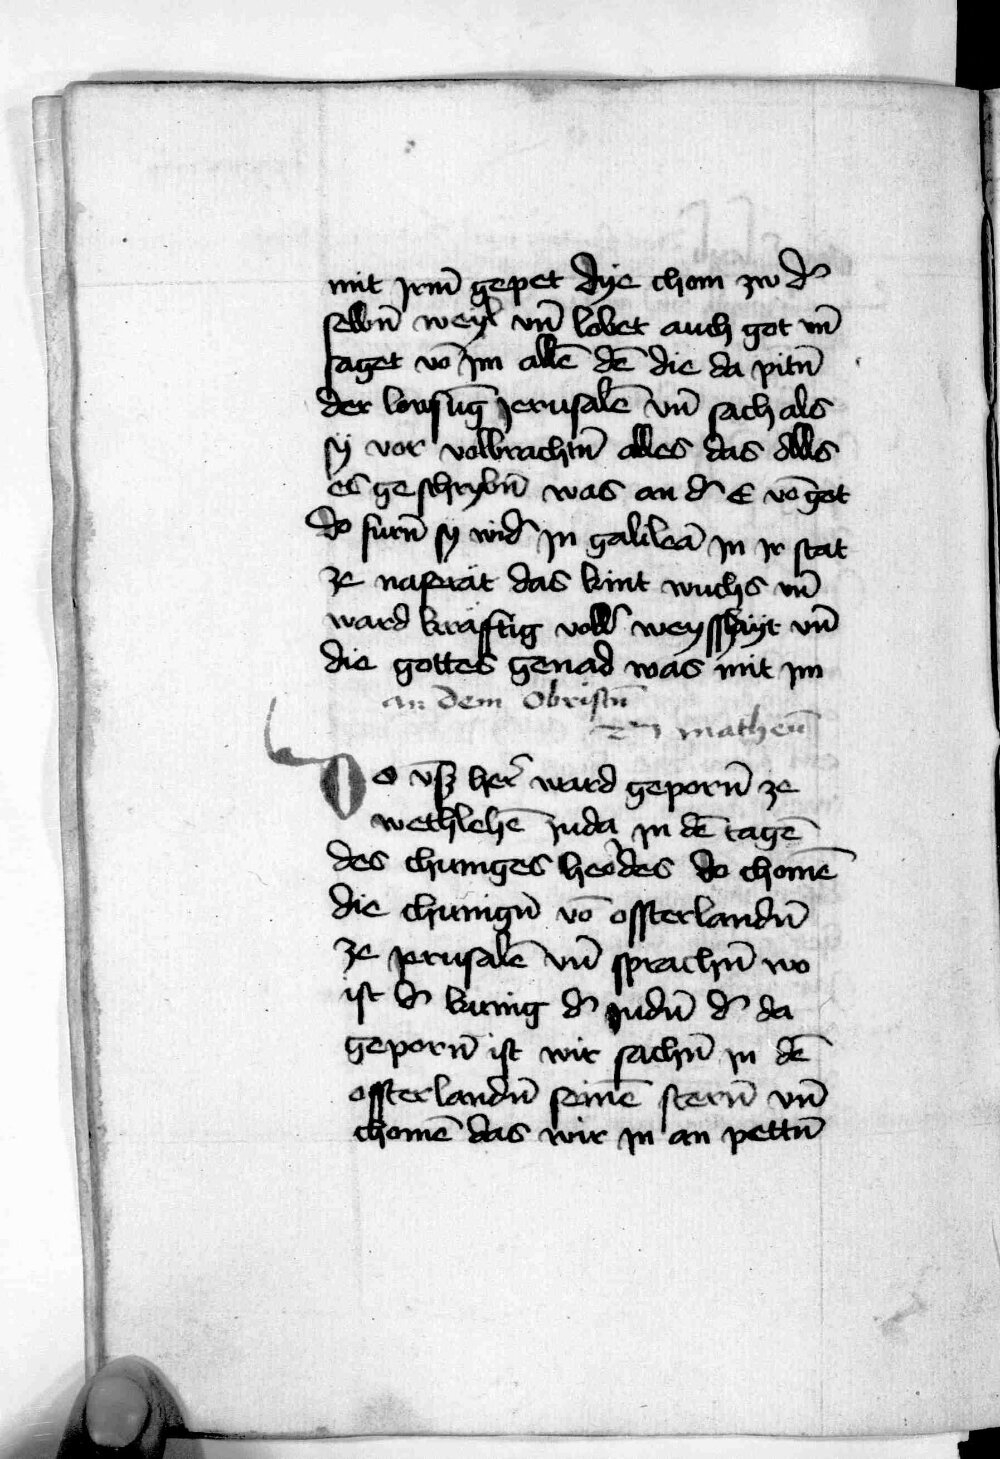 mit jrm̄ gepet dye chom zw d̕
selbn̄ weyl vn̄ lobet auch got vn̄
saget vō jm allē dē die da pitn̄
der losūg jerusalē vn̄ sach als
sy vor volbrachtn̄ alles das alls
es geschrybn̄ was an d̕ E vō got
do furn̄ sy wid̕ jn galileā jn jr stat
ze naserat das kint wuchs vn̄
ward kräfftig voll weysshäyt vn̄
die gottes genad was mit jm
an dem Obristn̄
matheū
Do vnser her̄ ward geporn̄ ze
wethlehē Juda jn dē tagē
des chuniges herodes do chomē
die chunign̄ vō ossterlandn̄
ze jerusalē vn̄ sprachn̄ wo
ist d̕ kunig d̕ judn̄ d̕ da
geporn̄ ist wir sachn̄ jn dē
ossterlandn̄ seinē stern̄ vn̄
chomē das wir jn an pettn̄